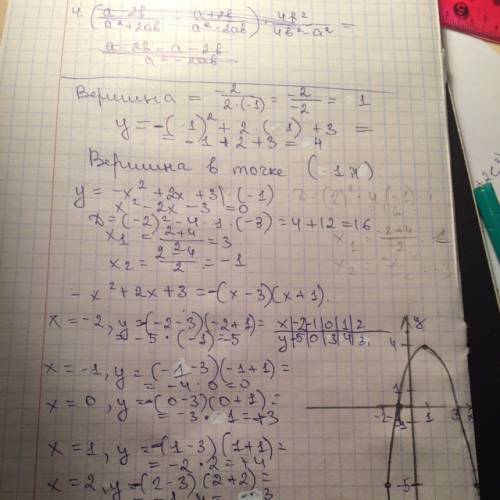 4. (a-2b/a²+2ab - a+2b/a²-2ab) · 4b²/4b²-a² =
a-2b-a-2b/a²-2ab
Вершина = -2/2·(-1) = -2/-2 = 1
y = -(1)² + 2·(1) + 3 =
= -1 + 2 + 3 = 4
Вершина в точке (1
y = -x² + 2x + 3) · (-1)
x² - 2x - 3 = 0
D = (-2)² - 4·1·(-3) = 4 + 12 = 16
x₁ = 2+4/2 = 3
x₂ = 2-4/2 = -1
-x² + 2x + 3 = -(x-3)(x+1).
x = -2, y = -(-2-3)(-2+1) =
= -5·(-1) = -5
x|-2|-1|0|1|2
y|-5|0|3|4|3
x = -1, y = (-1-3)(-1+1) =
= -4·0 = 0
x = 0, y = -(0-3)(0+1) =
= -3·1 = +3
x = 1, y = -(1-3)(1+1) =
= -2·2 = +4
x = 2, y = -(2-3)(2+2) =
y
4
1
-2
1
2
3
-5